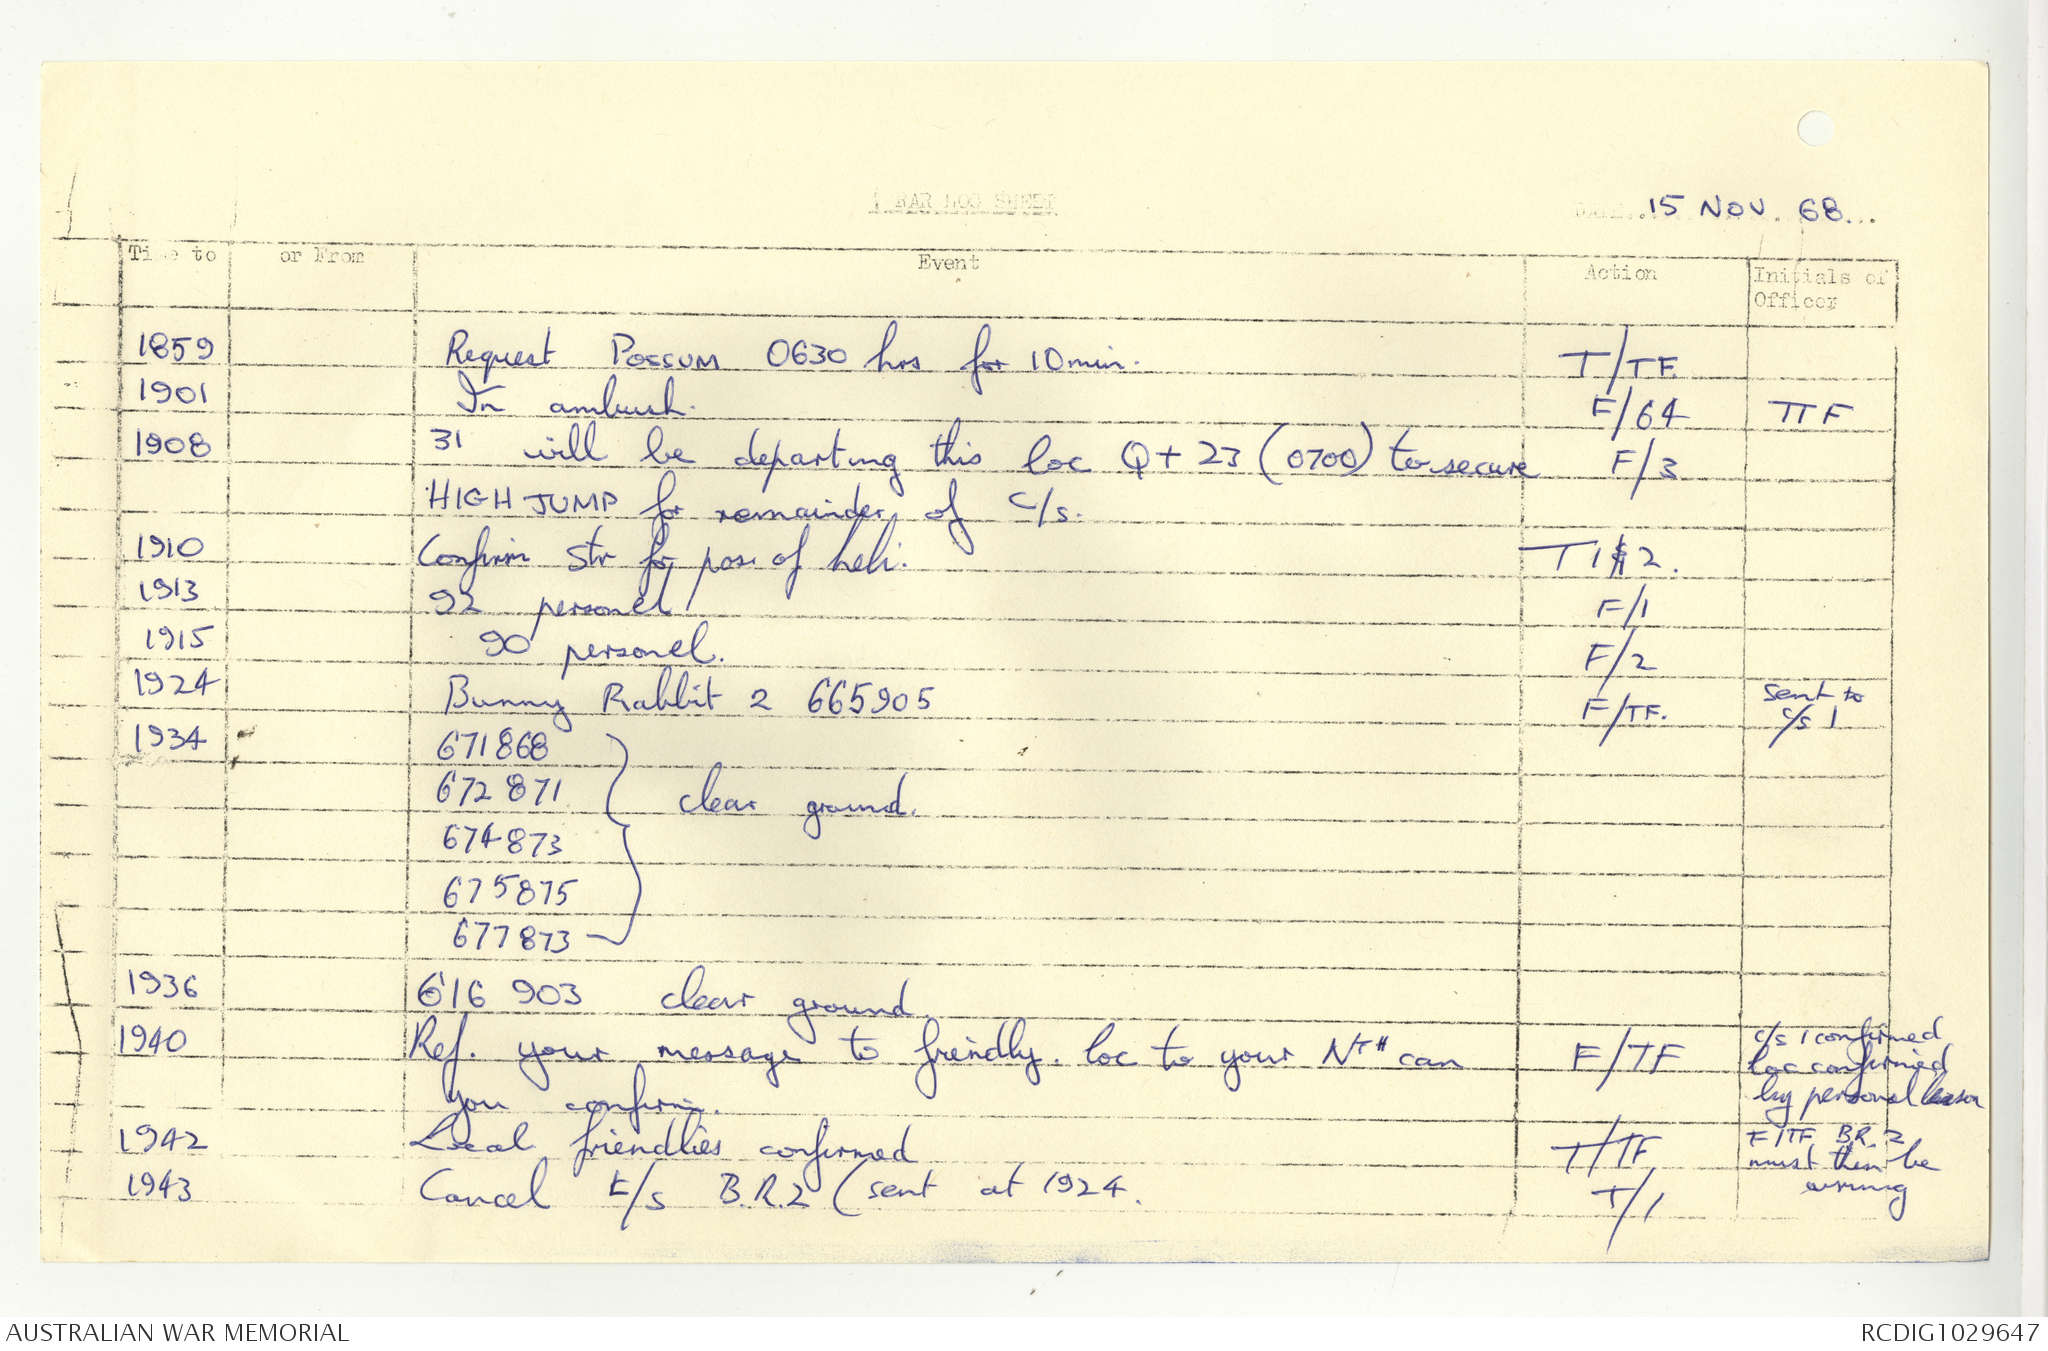 1 RAR LOG SHEET
DATE... 15 NOV 68...
Time to or From Event Action Initials of
Officer
1859 Request POSSUM 0630 hrs for 10 min. T/TF.
1901 In ambush. F/64 TTF
1908 31 will be departing this loc Q + 23 (0700) to secure F/3
HIGH JUMP for remainder of c/s.
1910 Confirm Str for pose of heli. T 1 & 2.
1913 92 personel F/1
1915 90 personel. F/2
1924 Bunny Rabbit 2 665905 F/TF. sent to
c/s 1
1934 671868
672 871 clear ground.
674873
675875
677873
1936 616 903 clear ground
1940 Ref. your message to friendly. loc to your NTH can F/TF c/s 1 confirmed
loc confirmed
you confirm. by personel
1942 Local friendlies confirmed T/TF F/TF B.R. 2
must then be
1943 Cancel B.R.2 (sent at 1924. T/1 wrong
AUSTRALIAN WAR MEMORIAL RCDIG1029647